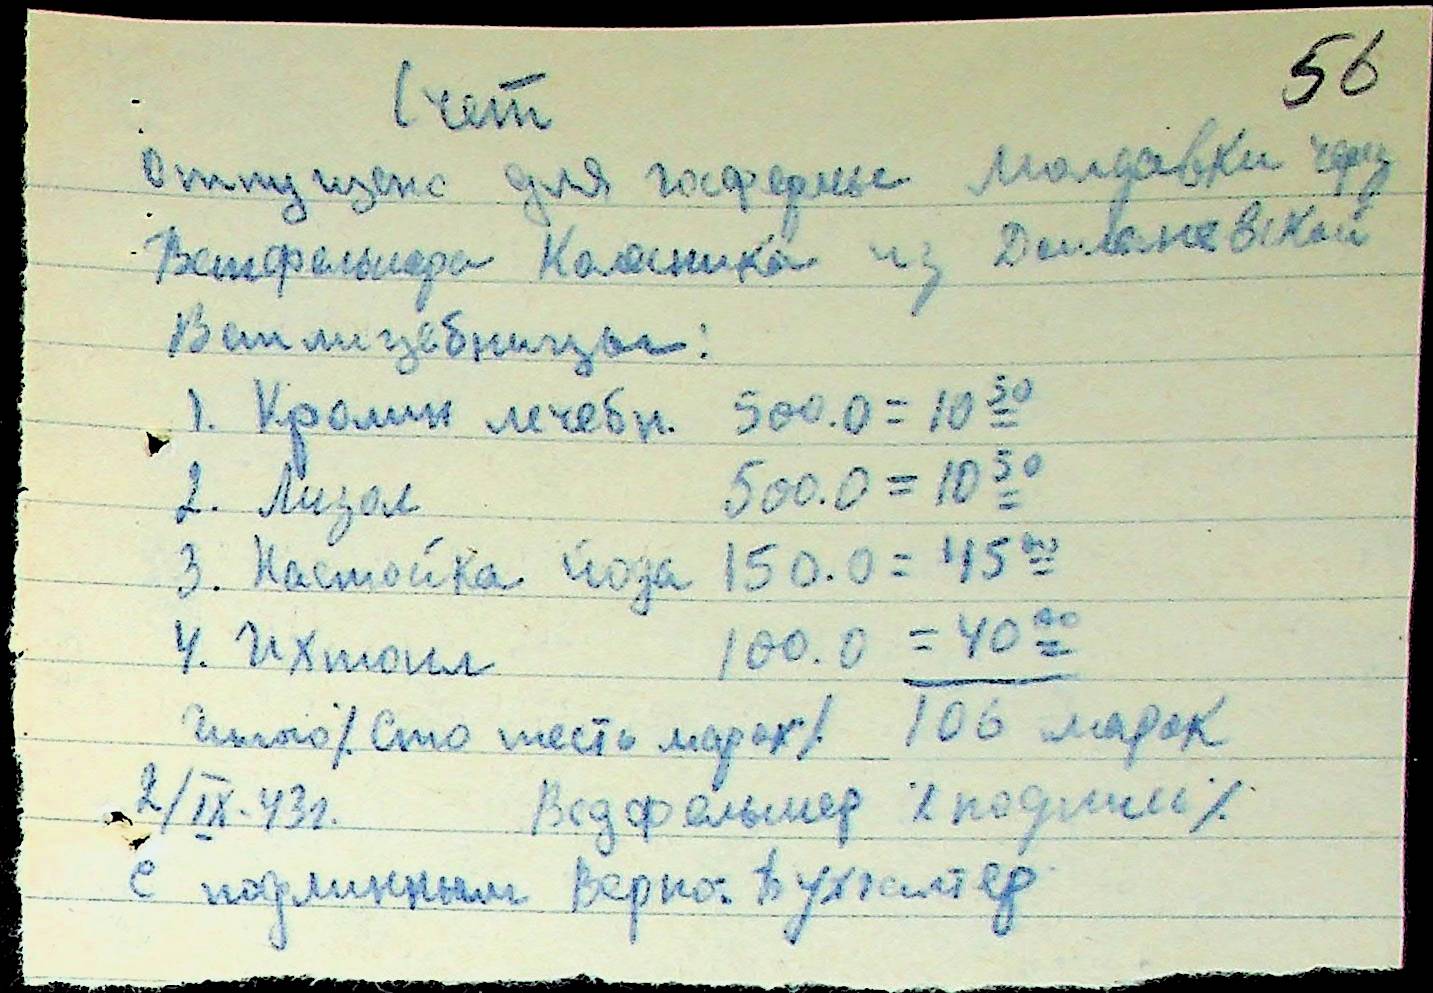 56
Счет
Отпущено для госфермы Молдавки через
Ветфельшера Колесника из Доманевской
Ветлицебницы:
1. Кролин лечебн. 500.0 = 10 50
2. Лизол 500.0 = 10 50
3. Настойка йода 150.0 = 45 00
4. Ихтиол 100.0 = 40 00
Итого /. Сто шесть марок /. 106 марок
2/IX-43г. Ведфельшер /. подпись /.
С подлинным Верно: Бухгалтер